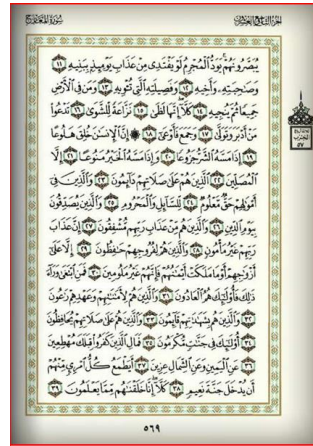 الجزء التاسع والعشرون سورة المعارج
يُبَصَّرُونَهُمْ يَوَدُّ الْمُجْرِمُ لَوْ يَفْتَدِي مِنْ عَذَابِ يَوْمِئِذٍ بِبَنِيهِ ١١
وَصَاحِبَتِهِ وَأَخِيهِ ١٢ وَفَصِيلَتِهِ الَّتِي تُؤْوِيهِ ١٣ وَمَنْ فِي الْأَرْضِ
جَمِيعًا ثُمَّ يُنْجِيهِ ١٤ كَلَّا إِنَّهَا لَظَى ١٥ نَزَّاعَةً لِلشَّوَى ١٦ تَدْعُوا
مَنْ أَدْبَرَ وَتَوَلَّى ١٧ وَجَمَعَ فَأَوْعَى ١٨ إِنَّ الْإِنْسَانَ خُلِقَ هَلُوعًا
١٩ إِذَا مَسَّهُ الشَّرُّ جَزُوعًا ٢٠ وَإِذَا مَسَّهُ الْخَيْرُ مَنُوعًا ٢١ إِلَّا
الْمُصَلِّينَ ٢٢ الَّذِينَ هُمْ عَلَى صَلَاتِهِمْ دَائِمُونَ ٢٣ وَالَّذِينَ فِي
أَمْوَالِهِمْ حَقٌّ مَعْلُومٌ ٢٤ لِلسَّائِلِ وَالْمَحْرُومِ ٢٥ وَالَّذِينَ يُصَدِّقُونَ
بِيَوْمِ الدِّينِ ٢٦ وَالَّذِينَ هُمْ مِنْ عَذَابِ رَبِّهِمْ مُشْفِقُونَ ٢٧ إِنَّ عَذَابَ
رَبِّهِمْ غَيْرُ مَأْمُونٍ ٢٨ وَالَّذِينَ هُمْ لِفُرُوجِهِمْ حَافِظُونَ ٢٩ إِلَّا عَلَى
أَزْوَاجِهِمْ أَوْ مَا مَلَكَتْ أَيْمَانُهُمْ فَإِنَّهُمْ غَيْرُ مَلُومِينَ ٣٠ فَمَنِ ابْتَغَى وَرَاءَ
ذَلِكَ فَأُولَئِكَ هُمُ الْعَادُونَ ٣١ وَالَّذِينَ هُمْ لِأَمَانَاتِهِمْ وَعَهْدِهِمْ رَاعُونَ
٣٢ وَالَّذِينَ هُمْ بِشَهَادَاتِهِمْ قَائِمُونَ ٣٣ وَالَّذِينَ هُمْ عَلَى صَلَاتِهِمْ يُحَافِظُونَ
٣٤ أُولَئِكَ فِي جَنَّاتٍ مُكْرَمُونَ ٣٥ فَمَالِ الَّذِينَ كَفَرُوا قِبَلَكَ مُهْطِعِينَ
٣٦ عَنِ الْيَمِينِ وَعَنِ الشِّمَالِ عِزِينَ ٣٧ أَيَطْمَعُ كُلُّ امْرِئٍ مِنْهُمْ
أَنْ يُدْخَلَ جَنَّةَ نَعِيمٍ ٣٨ كَلَّا إِنَّا خَلَقْنَاهُمْ مِمَّا يَعْلَمُونَ ٣٩
٥٦٩